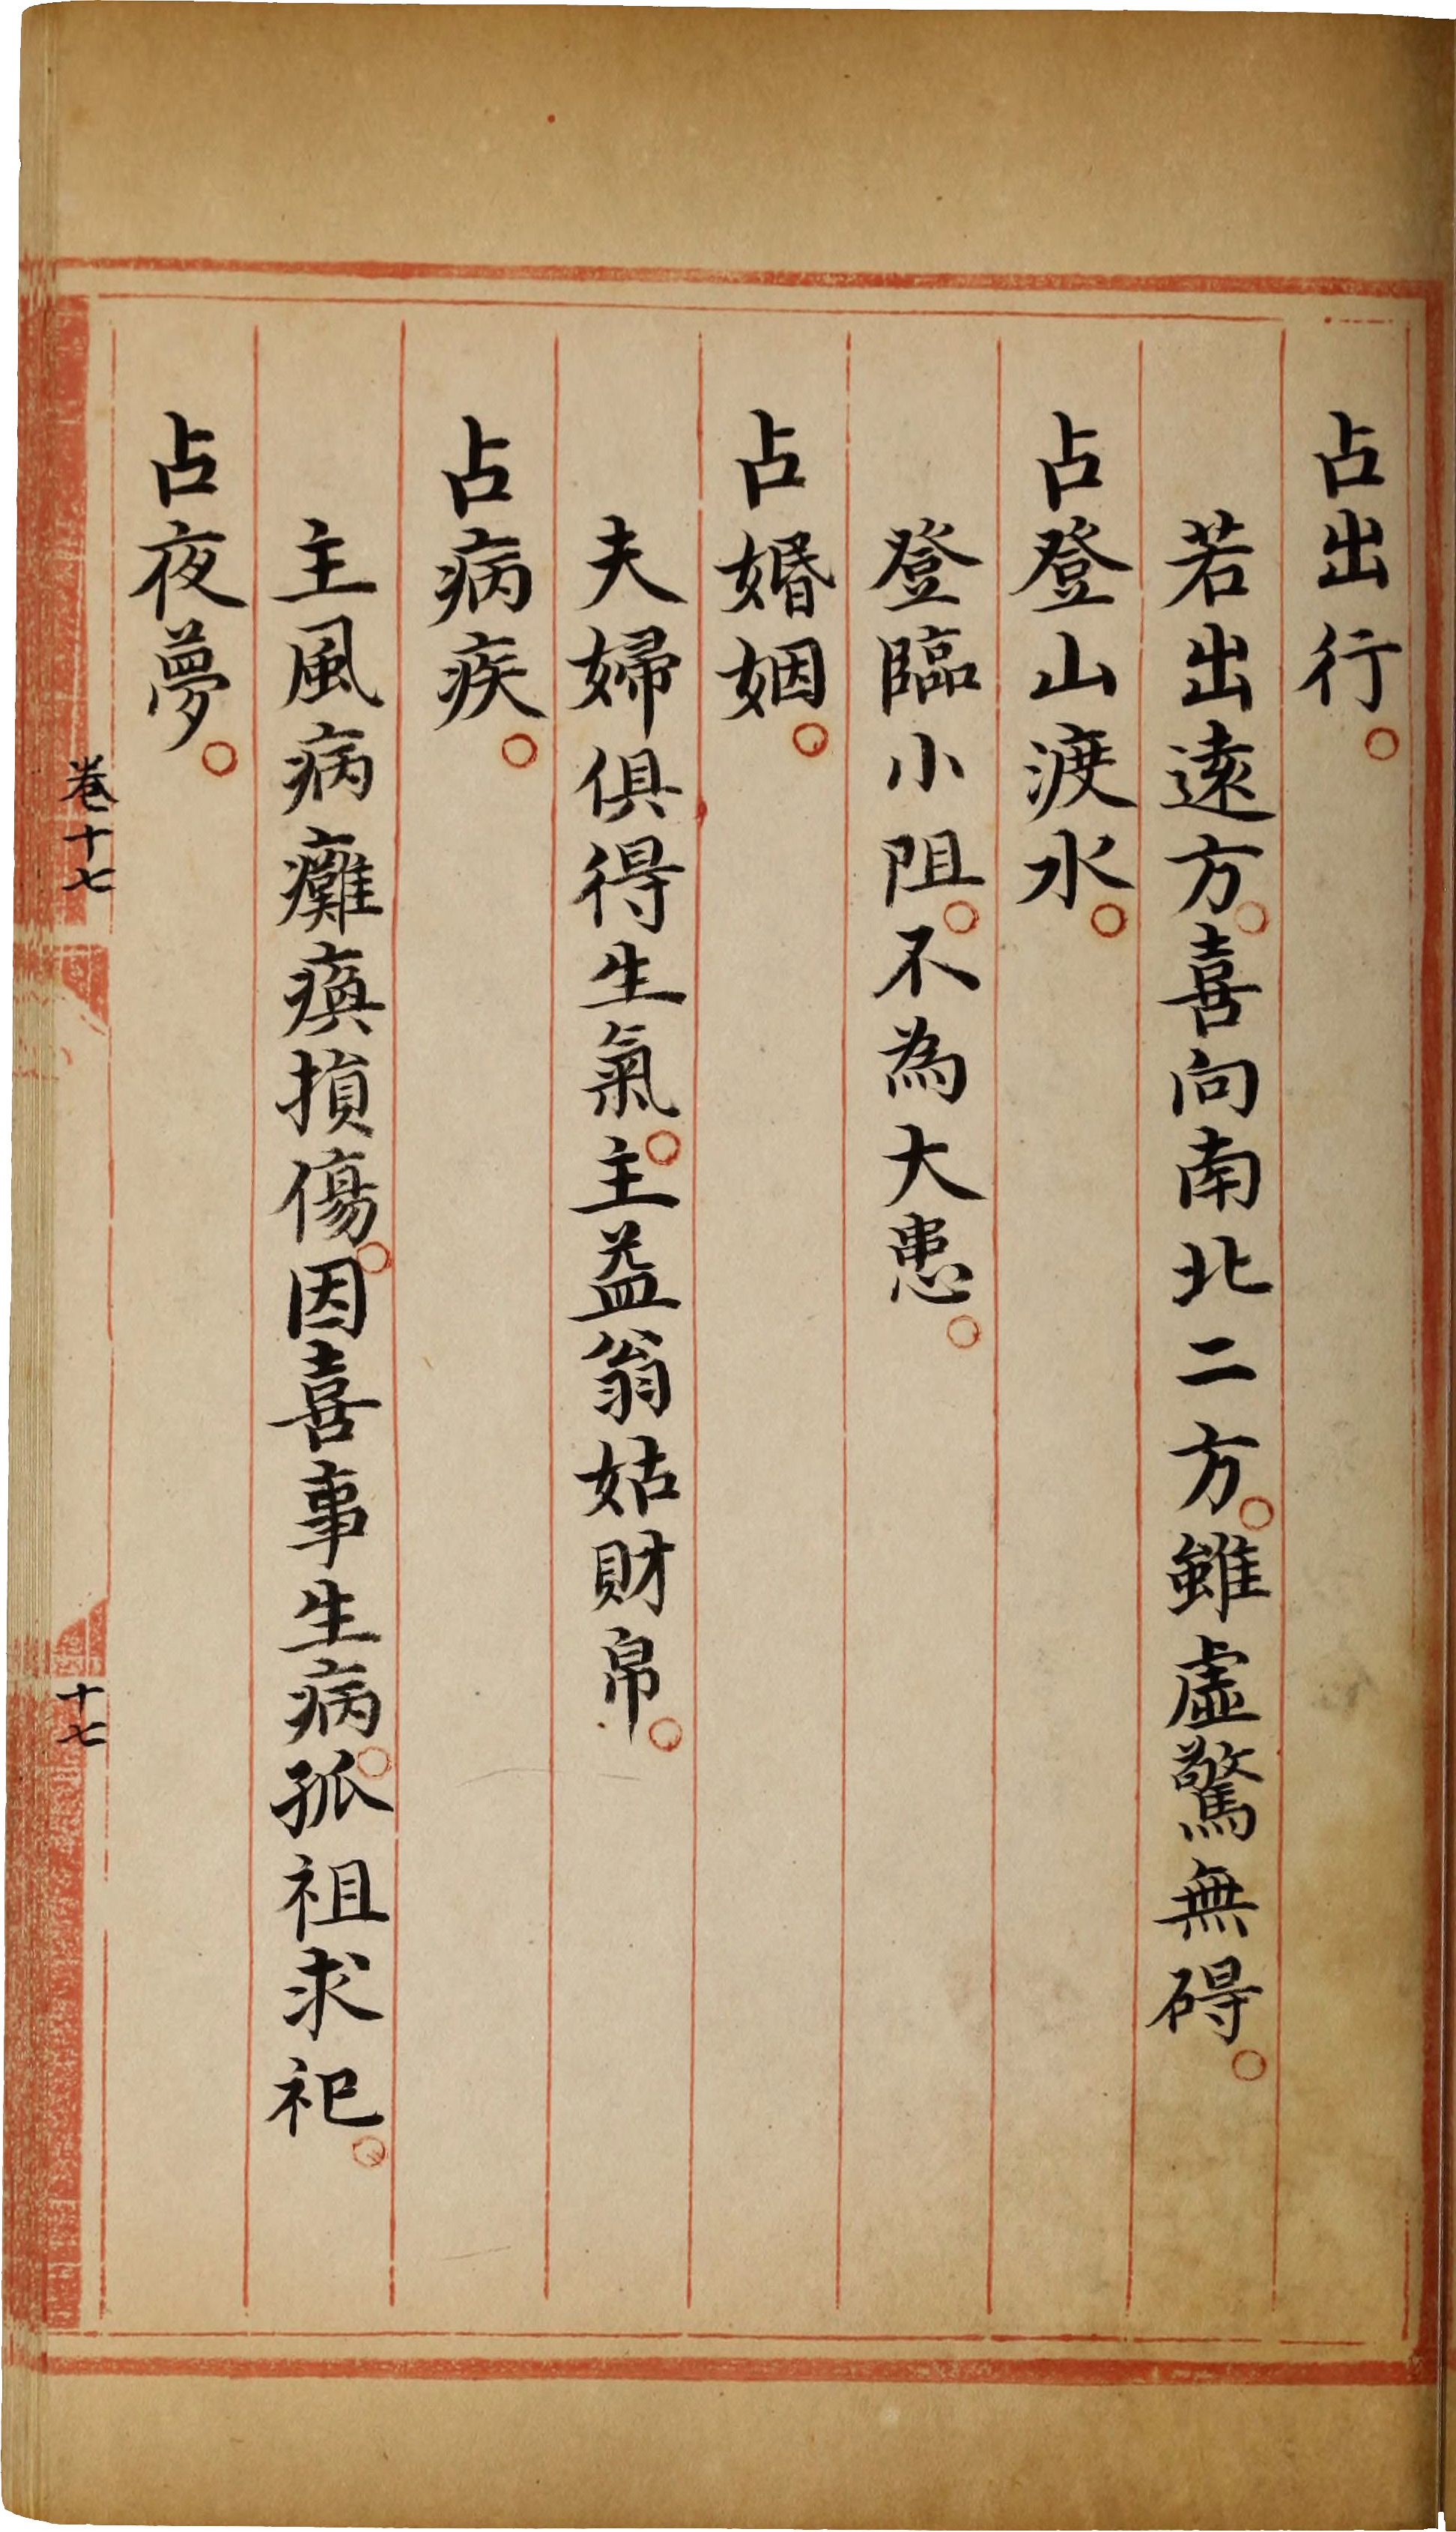 占出行。
若出遠方。喜向南北二方。雖虛驚無碍。
占登山渡水。
登臨小阻。不為大患。
占婚姻。
夫婦俱得生氣。主益翁姑財帛。
占病疾。
主風病癱瘓損傷。因喜事生病。孤祖求祀。
占夜夢。
卷十七
十七